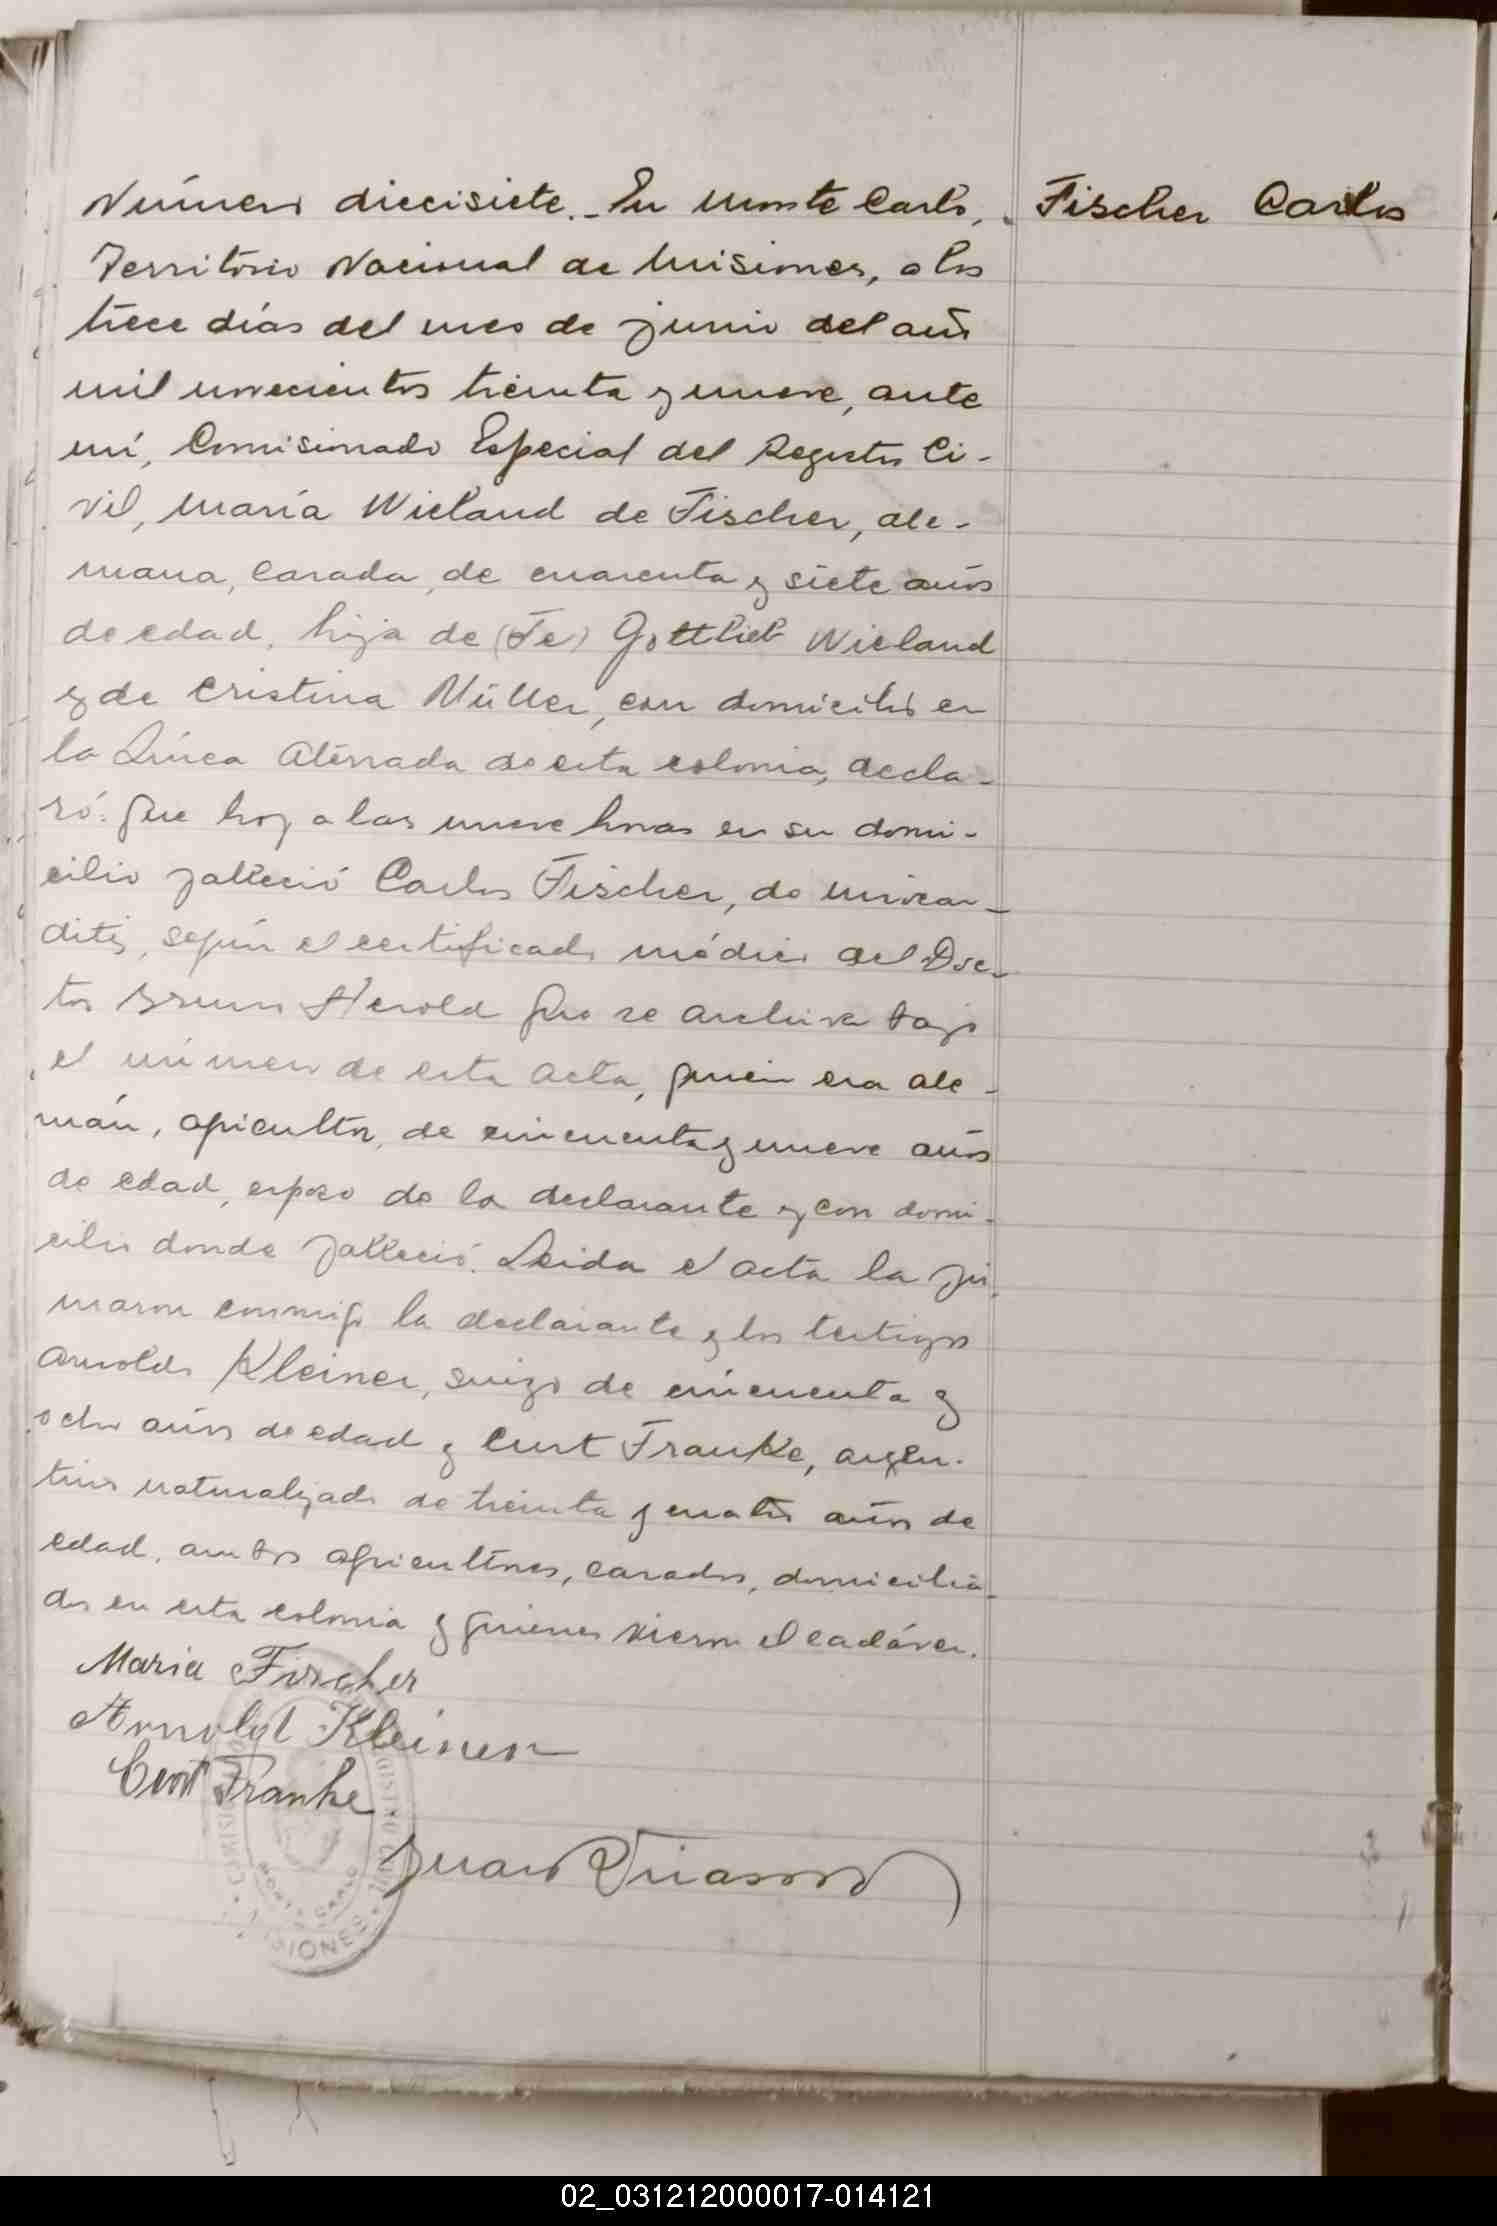 Número diecisiete. - En Monte Carlo,
Fischer Carlos
Territorio Nacional de Misiones, a los
trece días del mes de junio del año
mil novecientos treinta y nueve, ante
mí, Comisionado Especial del Registro Ci-
vil, María Wieland de Fischer, ale-
mana, casada, de cuarenta y siete años
de edad, hija de (Fe) Gottlieb Wieland
y de Cristina Müller, con domicilio en
la Línea de esta colonia, decla-
ró: Que hoy a las nueve horas en su domi-
cilio falleció Carlos Fischer, de miocar-
ditis, según el certificado médico del Doc-
tor Bruno Herold que se archiva bajo
el número de esta acta, quien era ale-
mán, agricultor, de cincuenta y nueve años
de edad, esposo de la declarante y con domi-
cilio donde falleció. Leida el acta la fir-
maron conmigo la declarante y los testigos
Arnoldo Kleiner, suizo de cincuenta y
ocho años de edad y Curt Franke, argen-
tino naturalizado de treinta y cuatro años de
edad, ambos agricultores, casados, domicilia-
dos en esta colonia y quienes vieron el cadáver.
Maria Fischer
Arnold Kleiner
Curt Franke
Juan
MISIONES
02_031212000017-014121